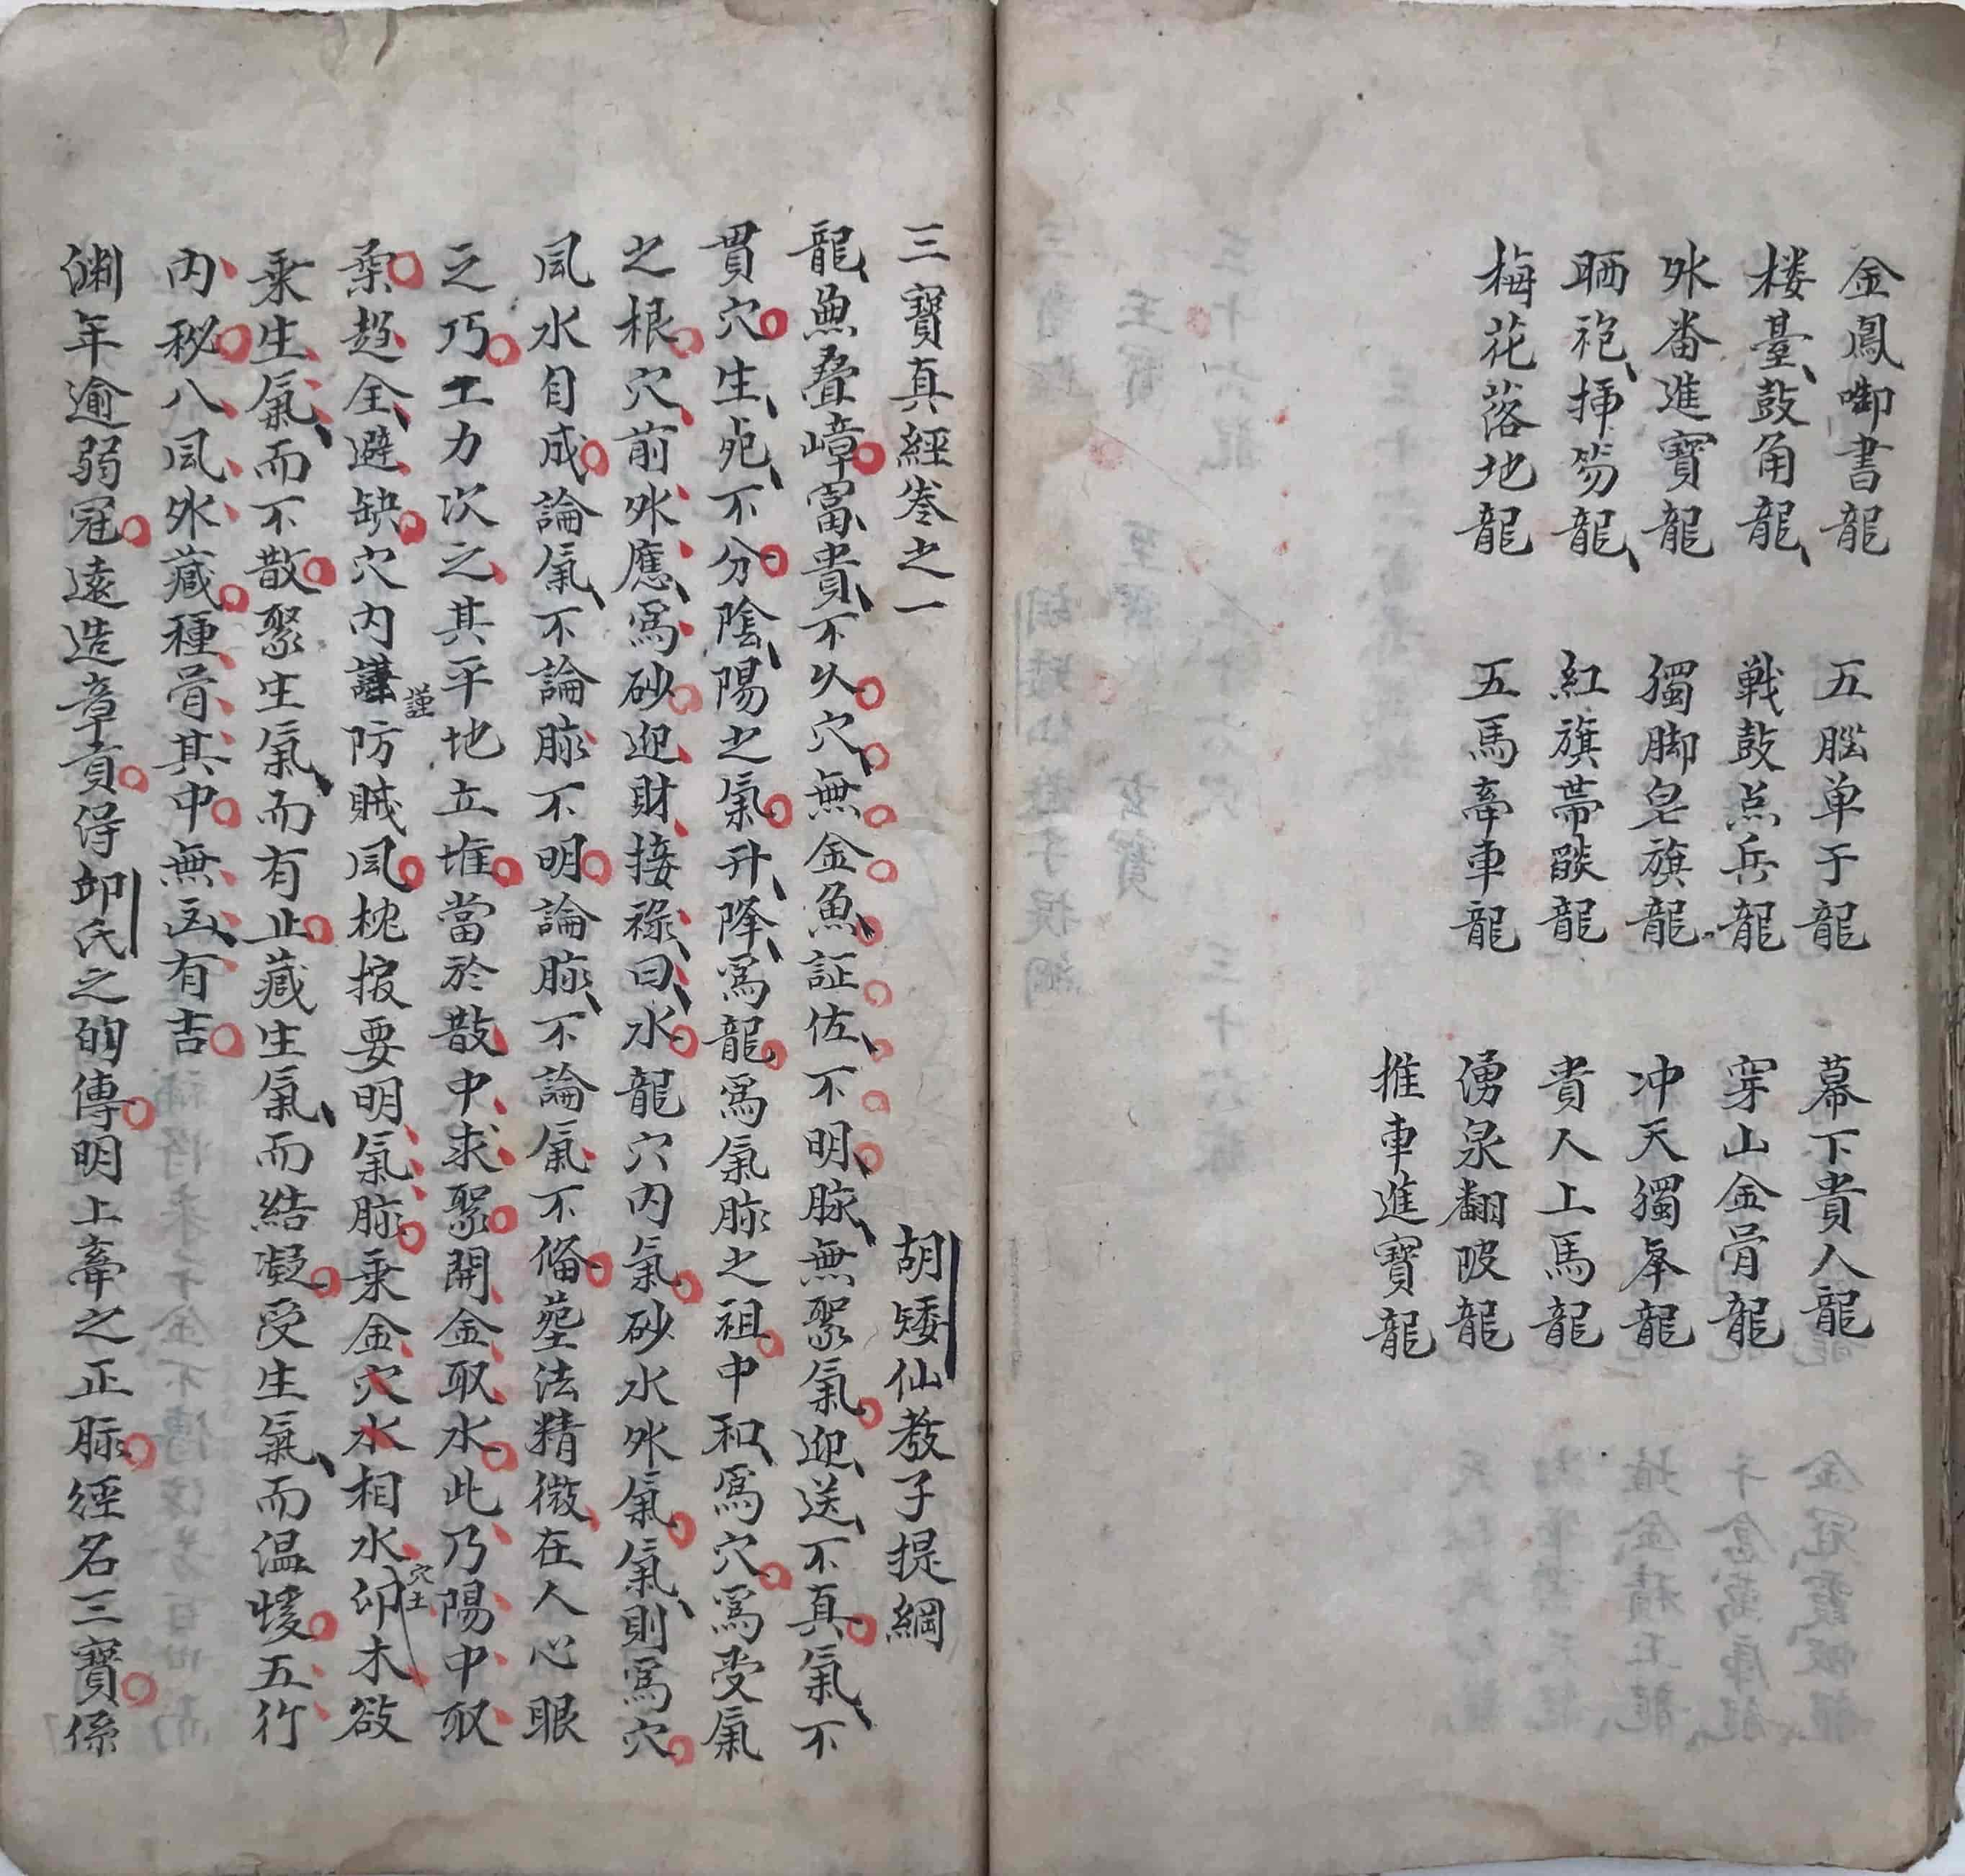 金鳳啣書龍 五腦单于龍 幕下貴人龍
楼臺鼓角龍 戦鼓点兵龍 穿山金骨龍
外番進寶龍 獨脚皂旗龍 冲天獨峯龍
晒袍搢笏龍 紅旗帯燄龍 貴人上馬龍
梅花落地龍 五馬牽車龍 湧泉翻波龍
推車進寶龍
三寶真經卷之一
胡矮仙教子提綱
龍無叠嶂富貴不久穴無金魚証佐不明脉無聚氣迎送不真氣不
貫穴生死不分陰陽之氣升降為龍為氣脉之祖中和為穴為受氣
之根穴前外應為砂迎財接祿曰水龍穴内氣砂水外氣氣則為穴
風水自成論氣不論脉不明論脉不論氣不俻塟法精微在人心眼
之巧工力次之其平地立堆當於散中求聚開金取水此乃陽中取
柔趋全避缺穴内謹防賊風枕掖要明氣脉乗金穴水相水印木欲
謹
穴土
乗生氣而不散聚生氣而有止藏生氣而結凝受生氣而温煖五行
内秘八風外藏種骨其中無凶有吉
渊年逾弱冠遠造章貢得邱氏之的傳明上牽之正脉經名三寶係